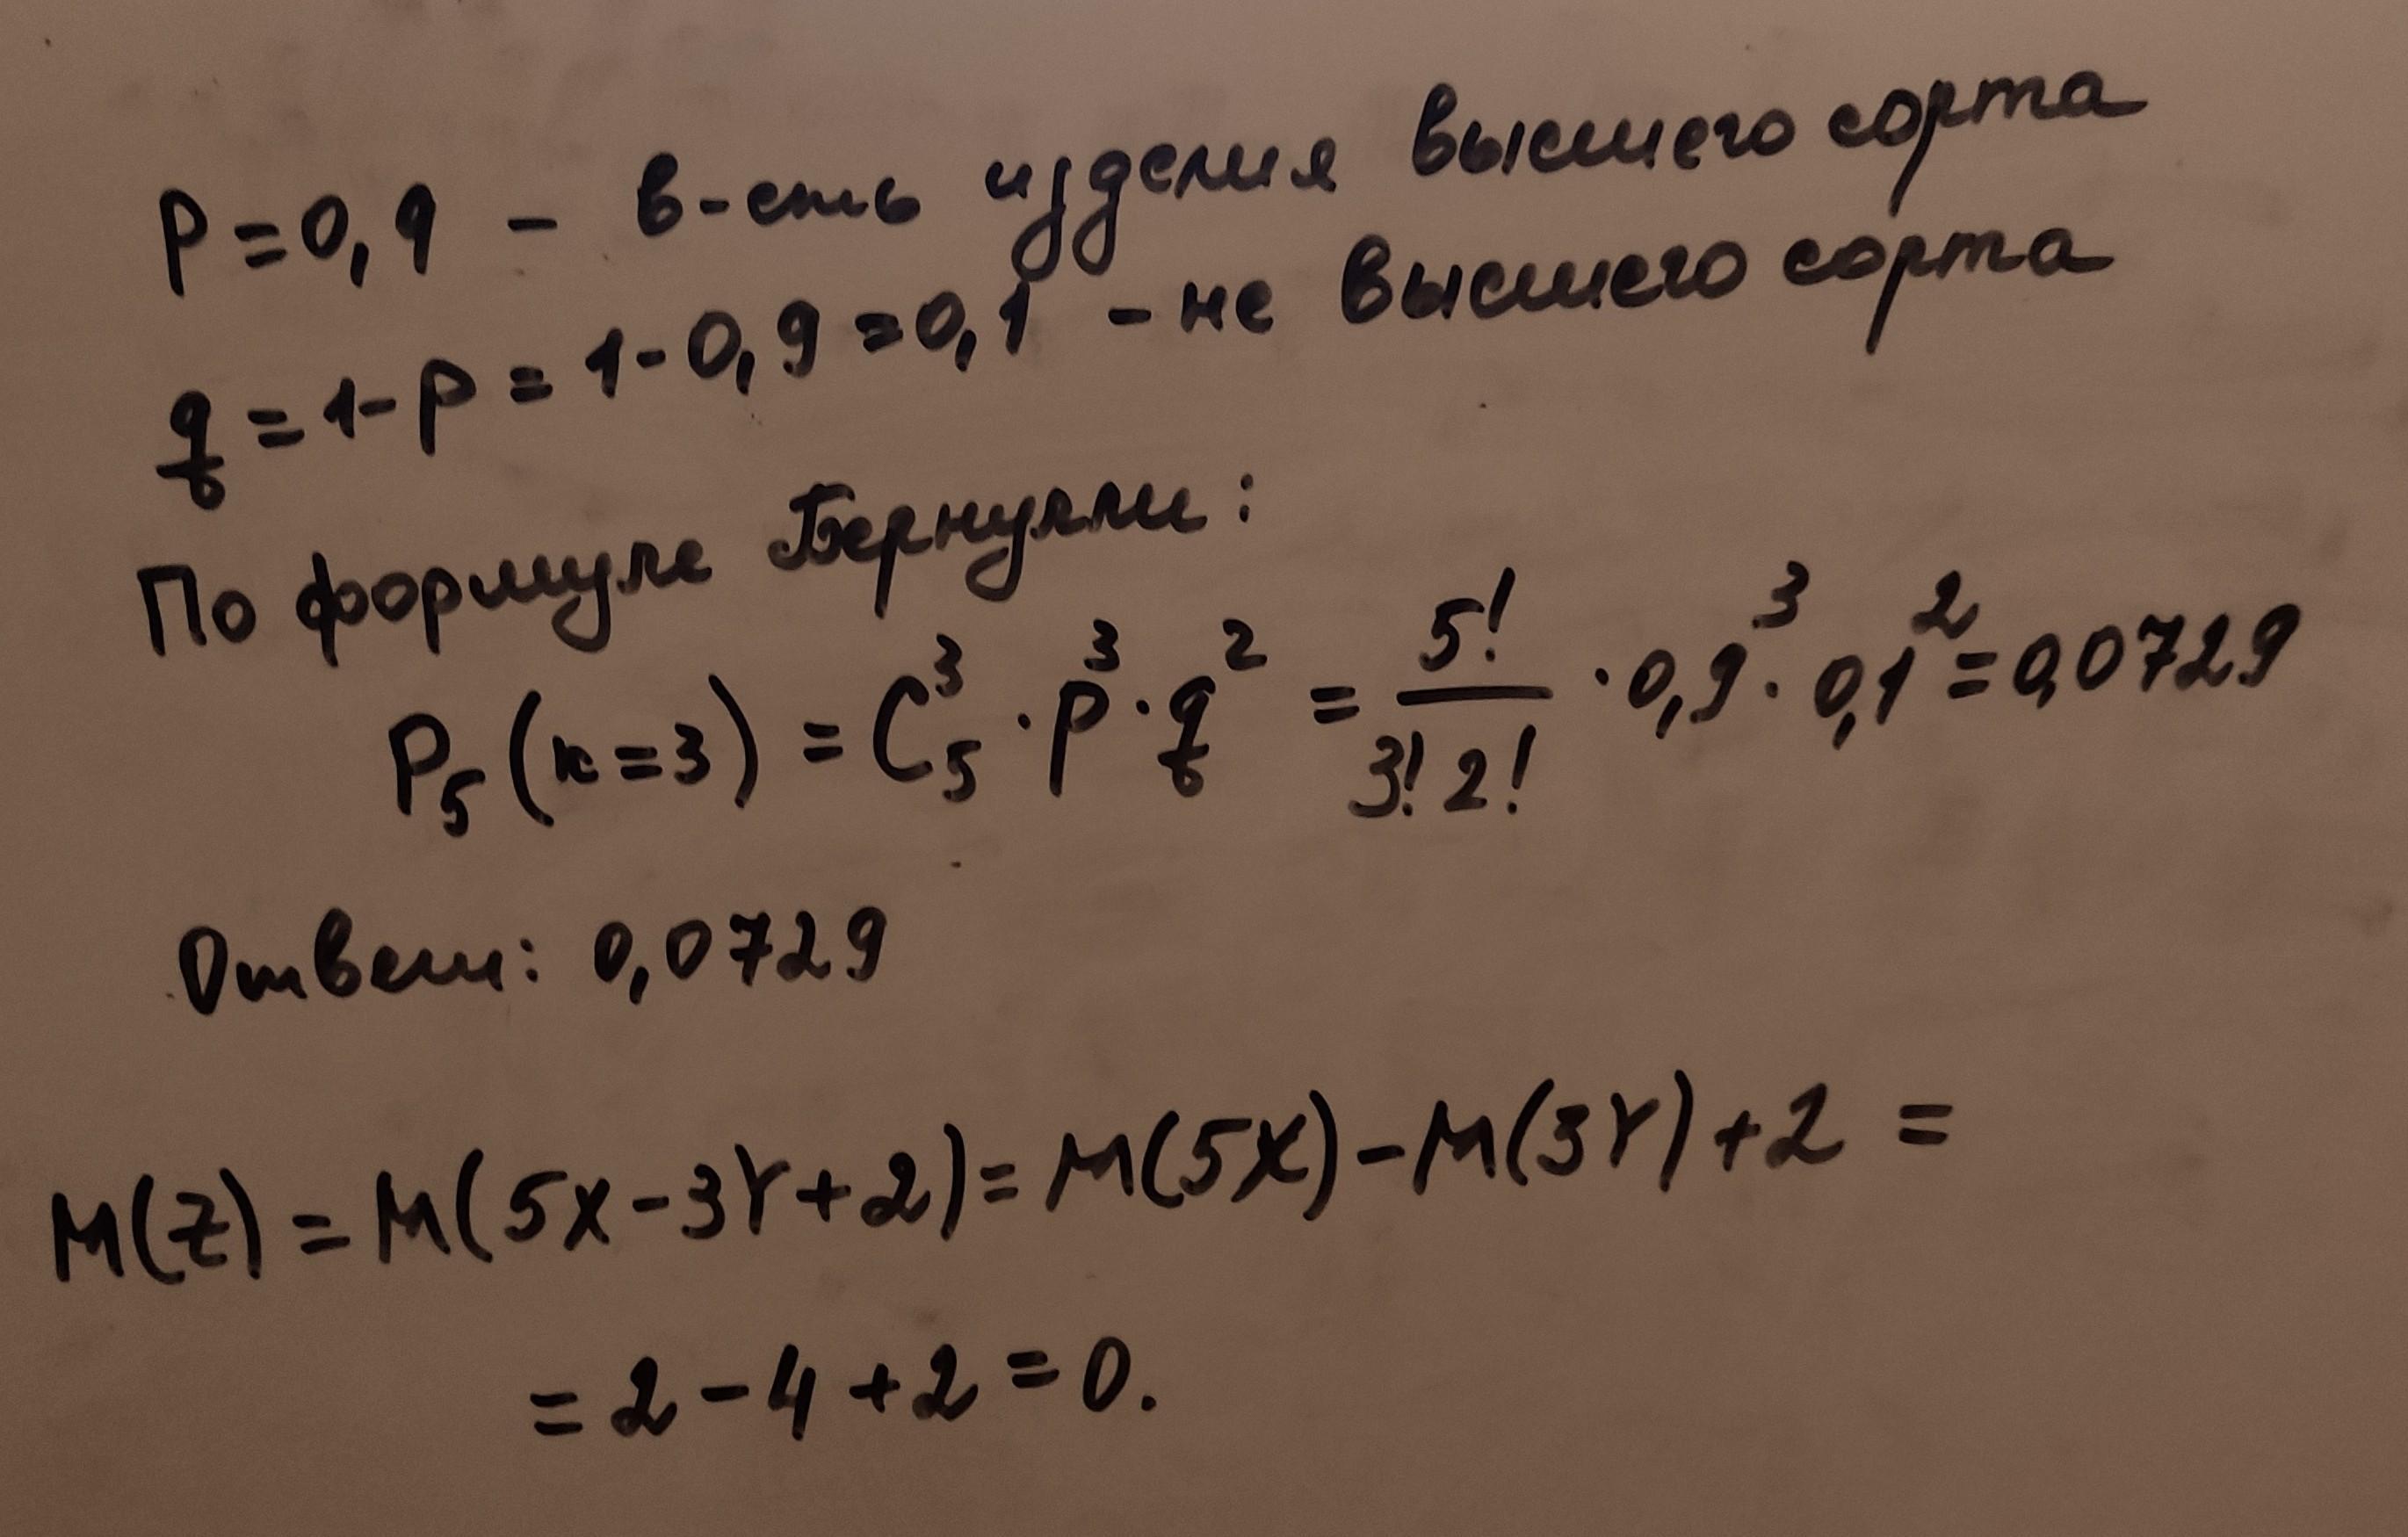 P = 0,9 - в-сть изделия высшего сорта
q = 1-P = 1-0,9 = 0,1 - не высшего сорта
По формуле Бернулли:
P₅(к=3) = C₅³ · p³ · q² = 5!/3!2! · 0,9³ · 0,1² = 0,0729
Ответ: 0,0729
M(Z) = M(5X-3Y+2) = M(5X) - M(3Y) + 2 =
= 2 - 4 + 2 = 0.